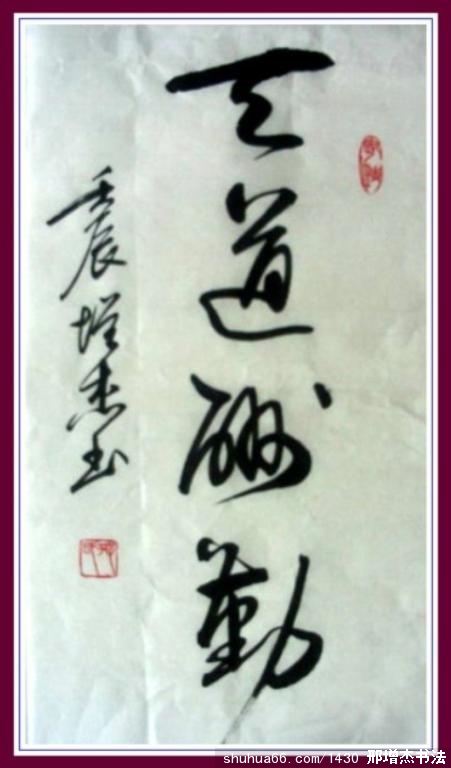 天道酬勤
壬辰增杰书
shuhua66.com/1430 邢增杰书法